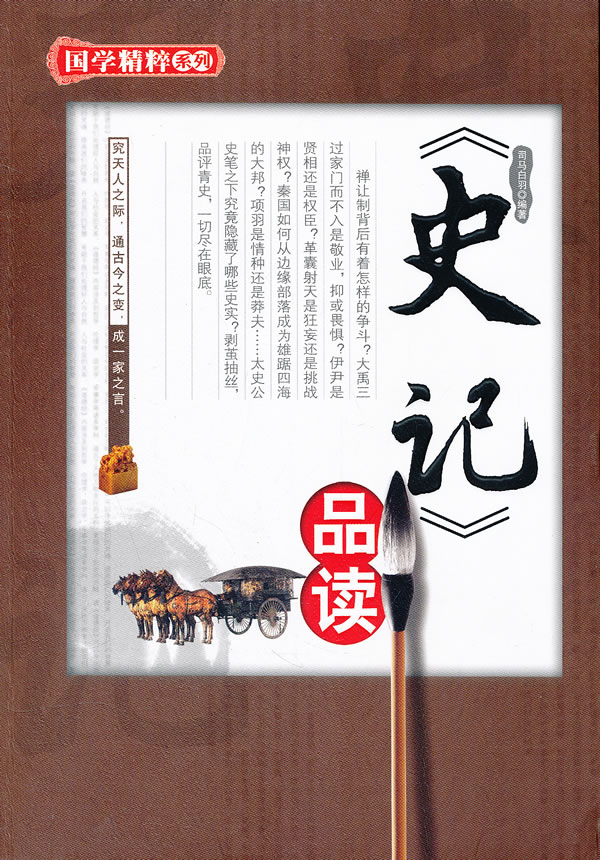 国学精粹系列
《史记》
品读
司马白羽◎编著
禅让制背后有着怎样的争斗？大禹三
过家门而不入是敬业，抑或畏惧？伊尹是
贤相还是权臣？革囊射天是狂妄还是挑战
神权？秦国如何从边缘部落成为雄踞四海
的大邦？项羽是情种还是莽夫……太史公
史笔之下究竟隐藏了哪些史实？剥茧抽丝，
品评青史，一切尽在眼底。
究天人之际，通古今之变，成一家之言。